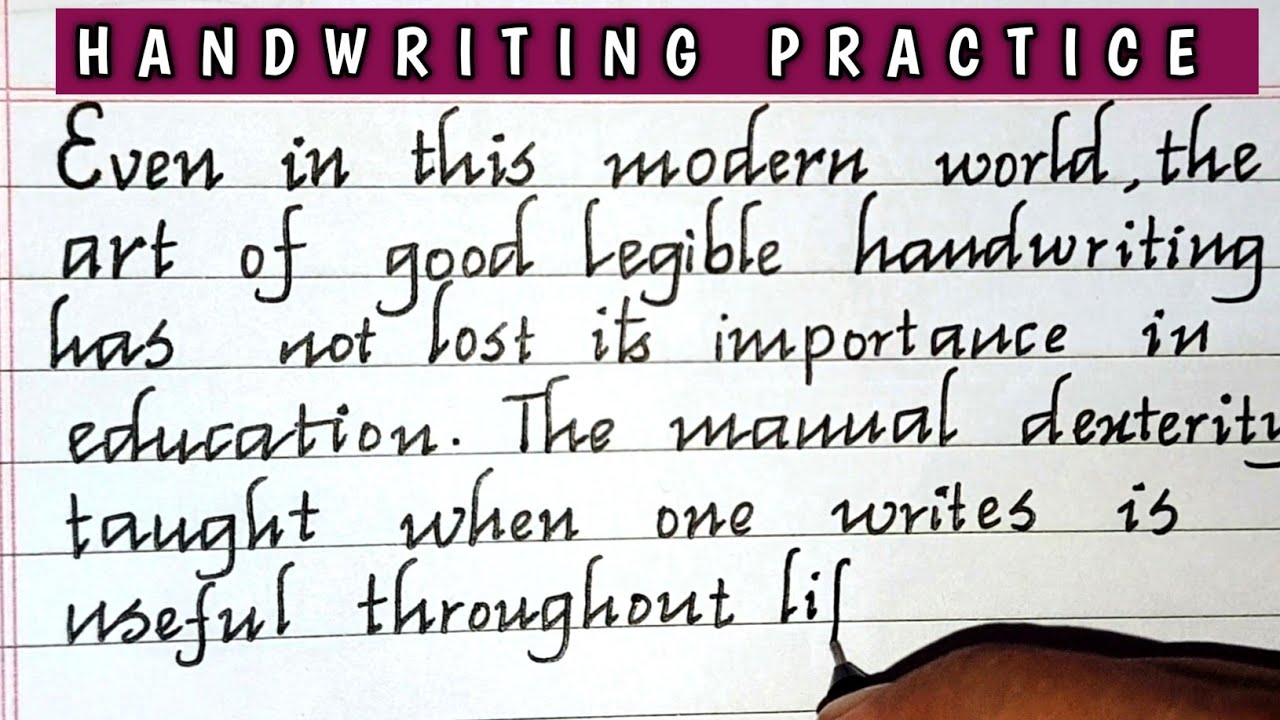 HANDWRITING PRACTICE
Even in this modern world, the
art of good legible handwriting
has not lost its importance in
education. The manual dexterity
taught when one writes is
useful throughout lif